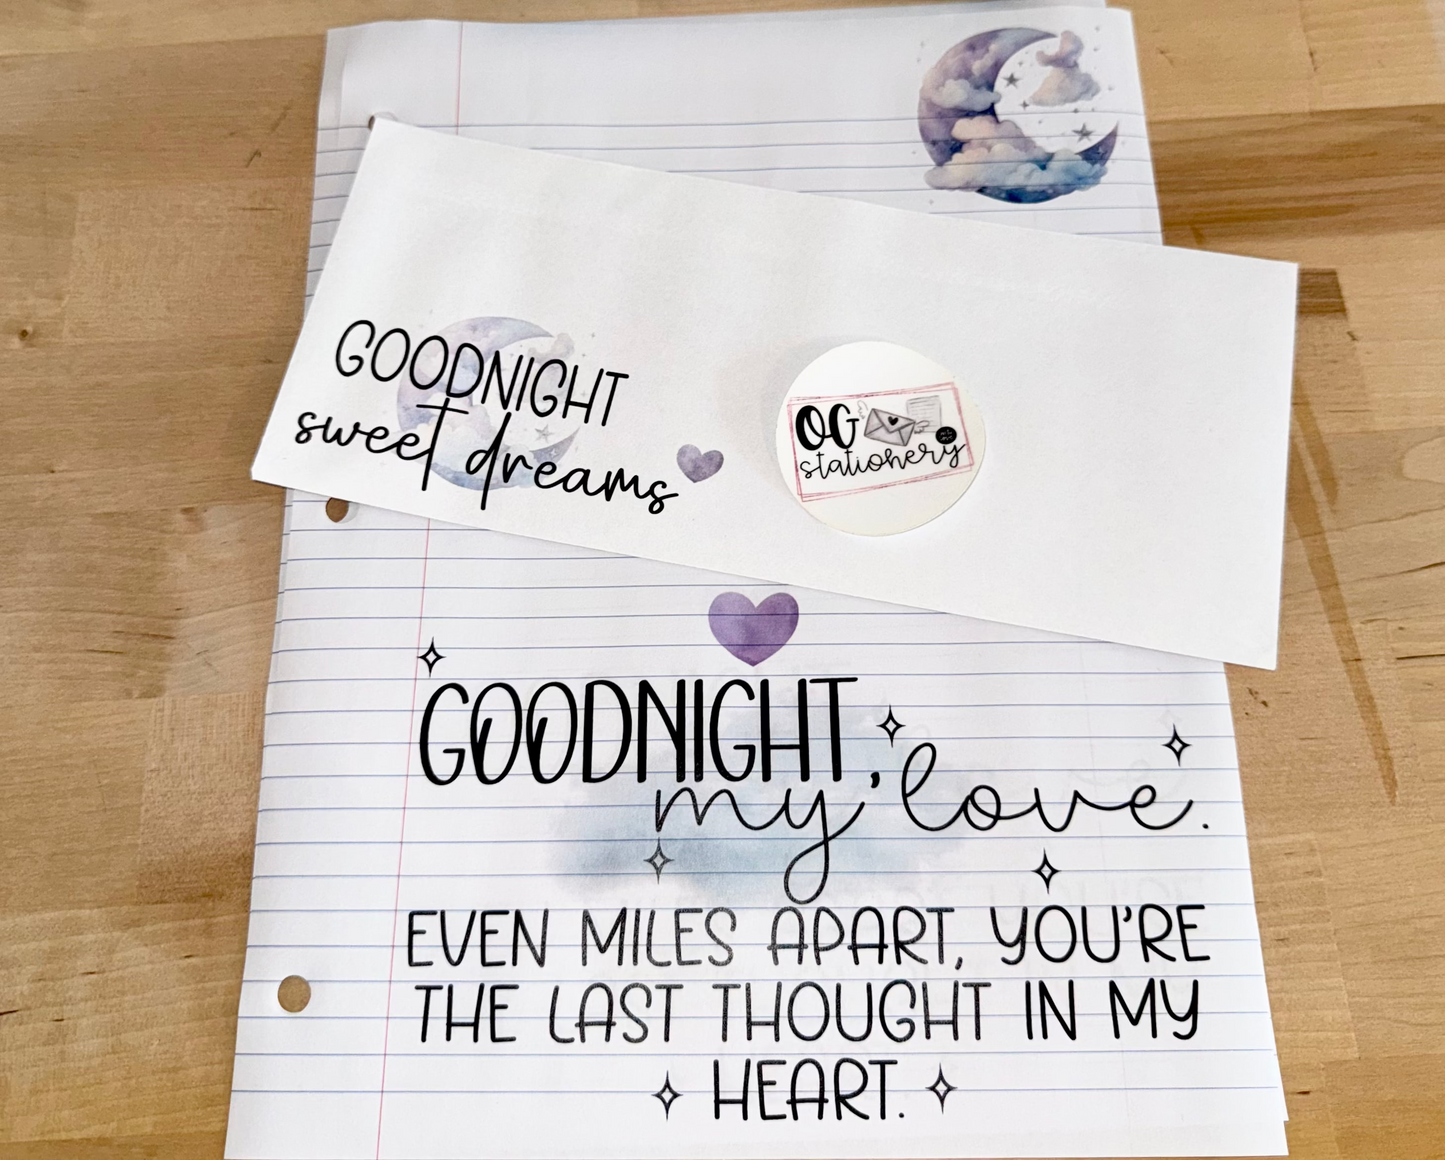 GOODNIGHT
sweet dreams
OG
stationery
GOODNIGHT,
my love.
EVEN MILES APART, YOU'RE
THE LAST THOUGHT IN MY
HEART.